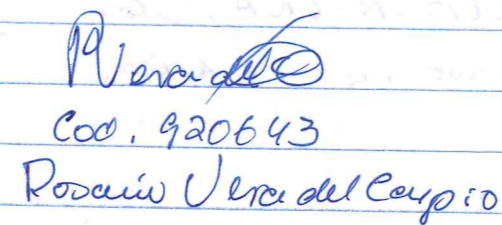 RVera del
Cod. 920643
Rosario Vera del Carpio